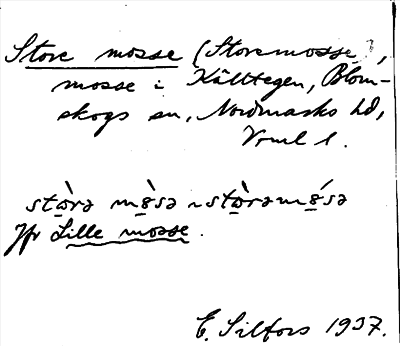 Store mosse (Storemosse),
mosse i Källtegen, Blom-
skogs sn, Nordmarks hd,
Vrml l.
stɷ̀rə mɵ̀sə ~ stɷ̀rəmɵ́sə
Jfr Lille mosse.
E. Silfors 1937.